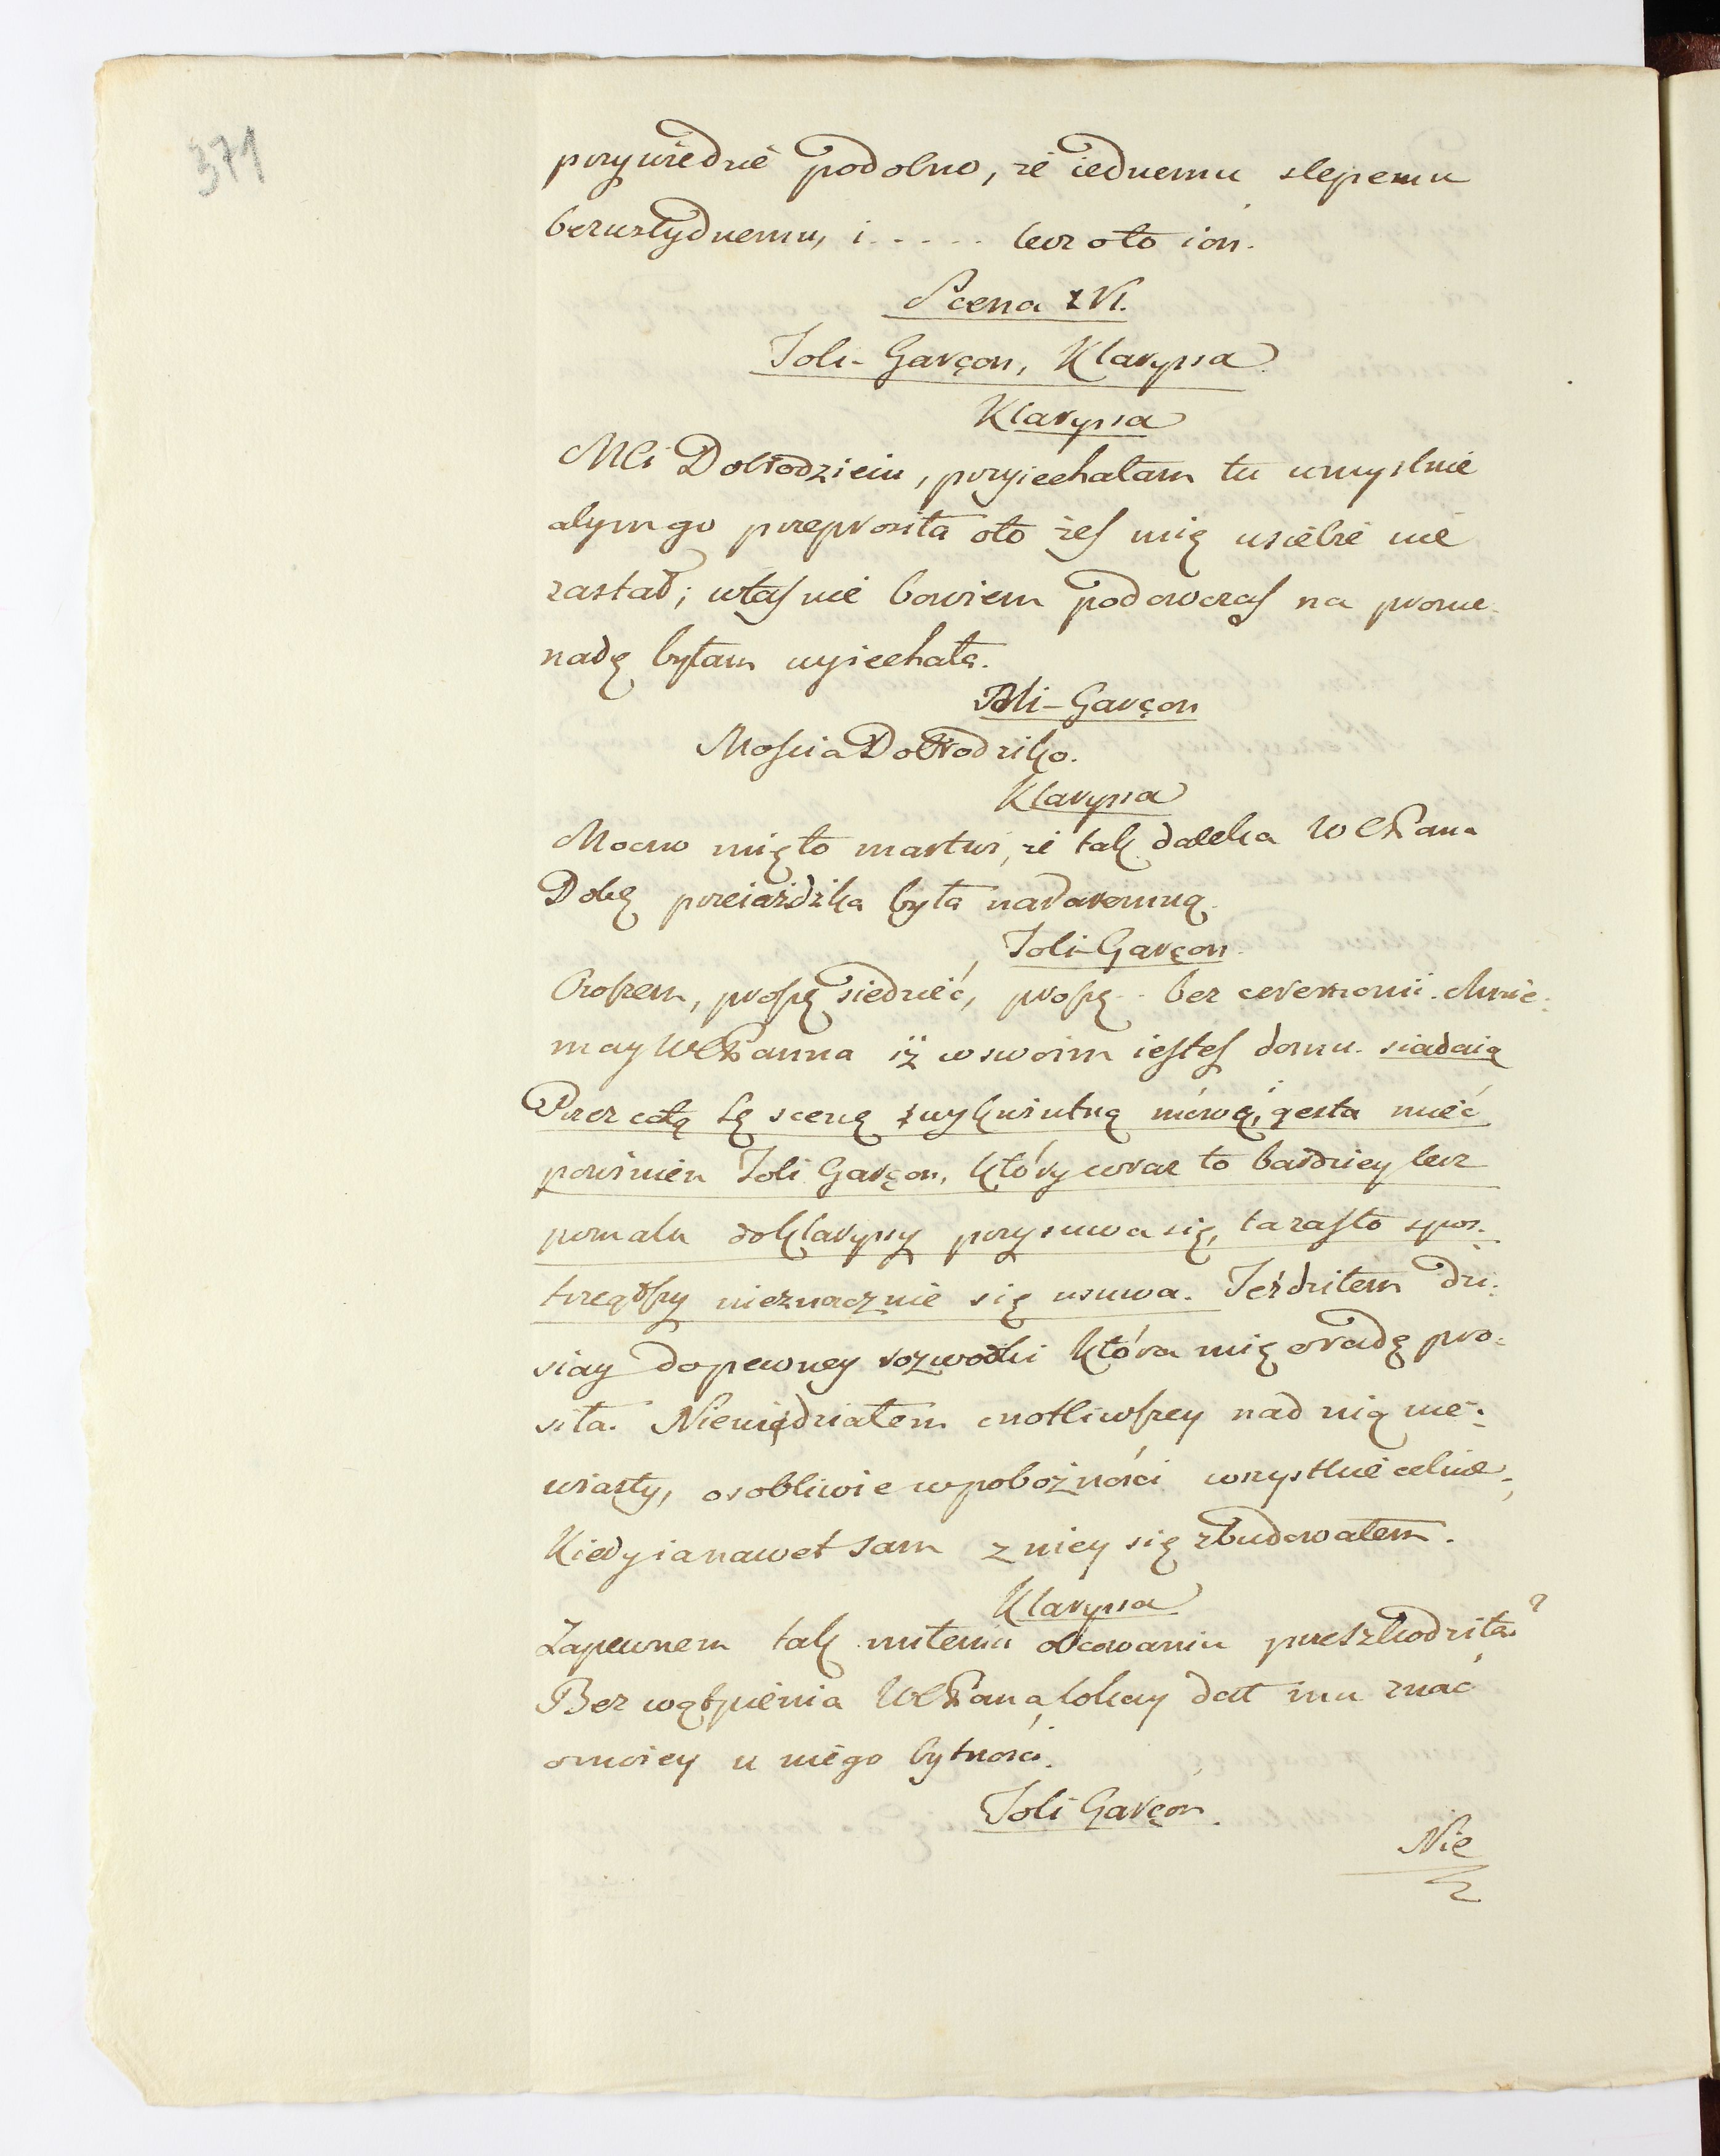 371
przywiedzie podobno, że iednemu slepemu
bezwstydnemu, i ..... lecz oto ion.
Scena XVI.
Joli-Garçon, Klaryssa
Klaryssa
MCi Dobrodzieiu, przyiechałam tu umyslnie
abym go przeprosiła oto żeś mię usiebie nie
zastał; właśnie bowiem podowczas na prome-
nadę byłam wyiechała.
Joli-Garçon
Mościa Dobrodziko.
Klaryssa
Mocno mię to martwi, że tak daleka WCPana
Dobę przeiażdżka była nadaremną.
Joli-Garçon
Proszem, proszę siedzieć, proszę .. bez ceremonii. Mnie:
may WCPanna iż w swoim iesteś domu. siadaią
Przez całą tę scenę zwykwintną mówą, i gesta mieć
powinien Joli Garçon, który coraz to bardziey lecz
pomału do Klaryssy przysuwa się, ta zaś to spos:
trzegłszy nieznacznie się usuwa. Jeździłem dzi:
siay do pewney rozwodki która mię o radę pro:
siła. Niewidziałem cnotliwszey nad nią nie:
wiasty, osobliwie w pobożności wszystkie celuie,
Kiedy ia nawet sam z niey się zbudowałem.
Klaryssa
Zapewnem tak miłemu obcowaniu przeszkodziła?
Bez wątpienia WCPana lokay dał mu znać
o moiey u niego bytności.
Joli Garçon.
Nie